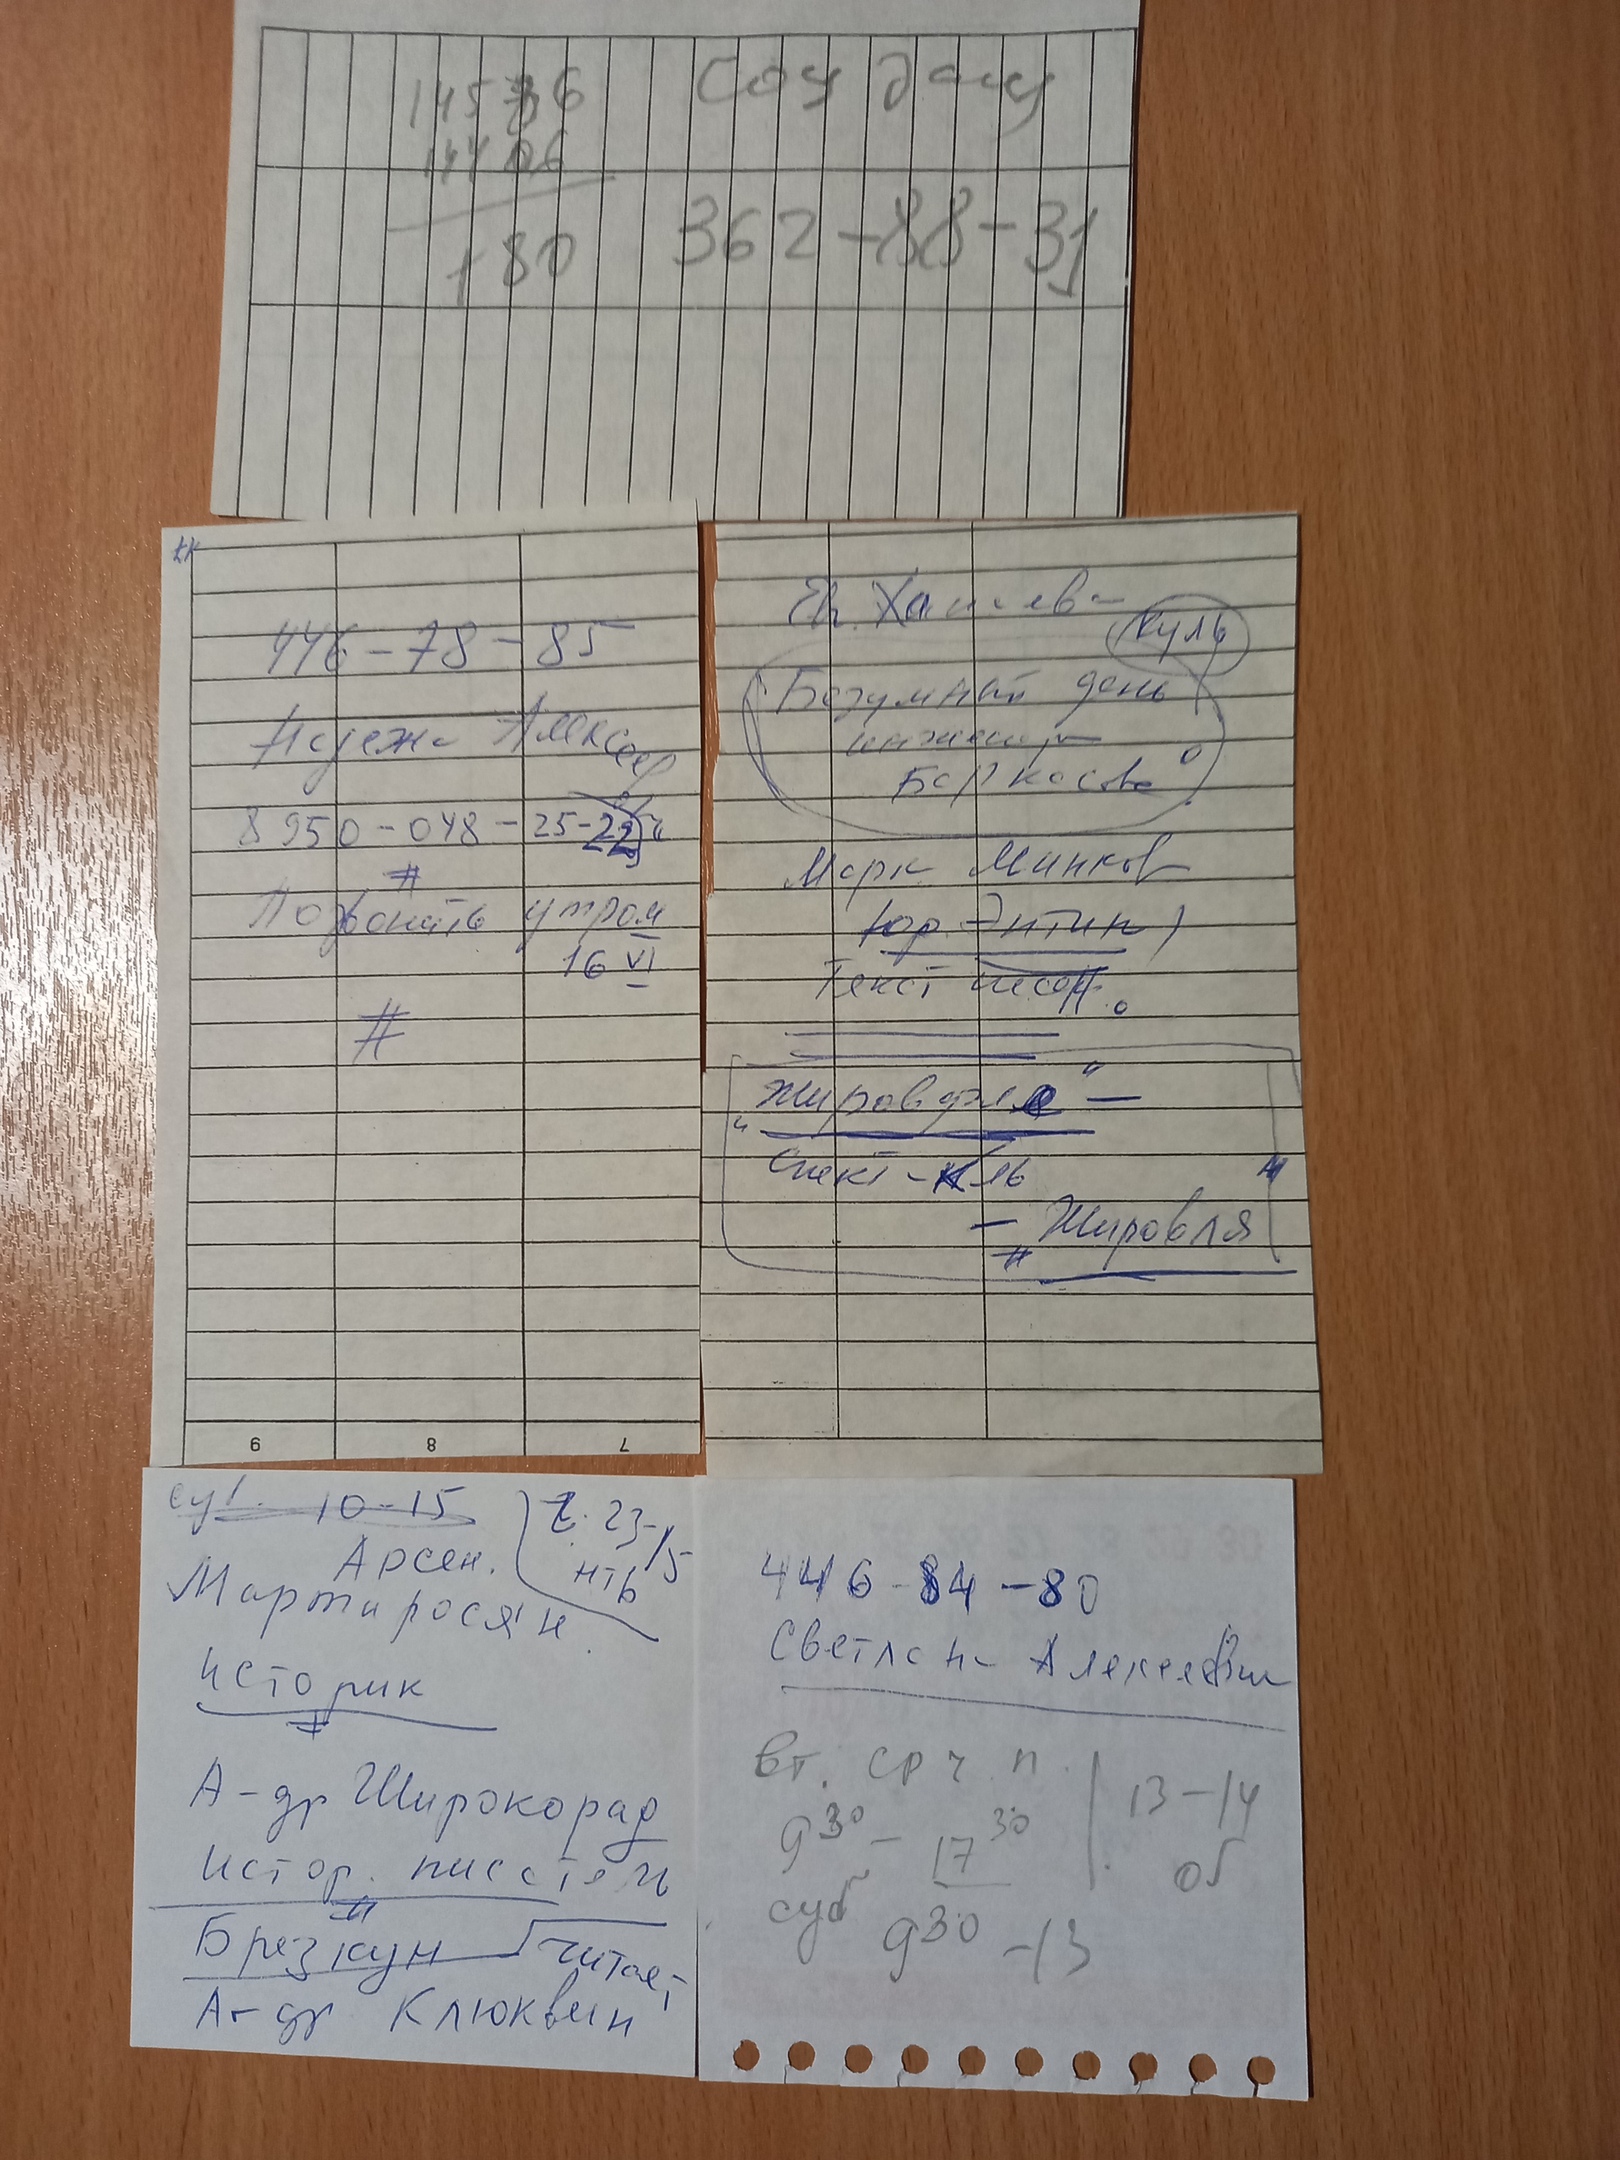 14586
14406
180
Соц дому
362-88-31
446-78-85
Надежа Алексеев
8950-048-25-22
#
Позвонить утром
16 VI
#
Ек. Хашева
Куль
Безумный день
инженера
Баркасова
Марк Минков
Юр. Энтин)
Текст песен.
"Жировдяле" –
Спект-кль
– "Жировля"
9 8 7
суб. 10-15
Z. 23-15
нтв
Арсен.
Мартиросян
историк
#
А-др Широкорад
Истор. писатель
#
Брезкун читает
А-др Клюквин
446-84-80
Светлана Алексеевн
Вт. ср ч п.
9 30 – 17 30
13-14
об
суб
9 30 -13